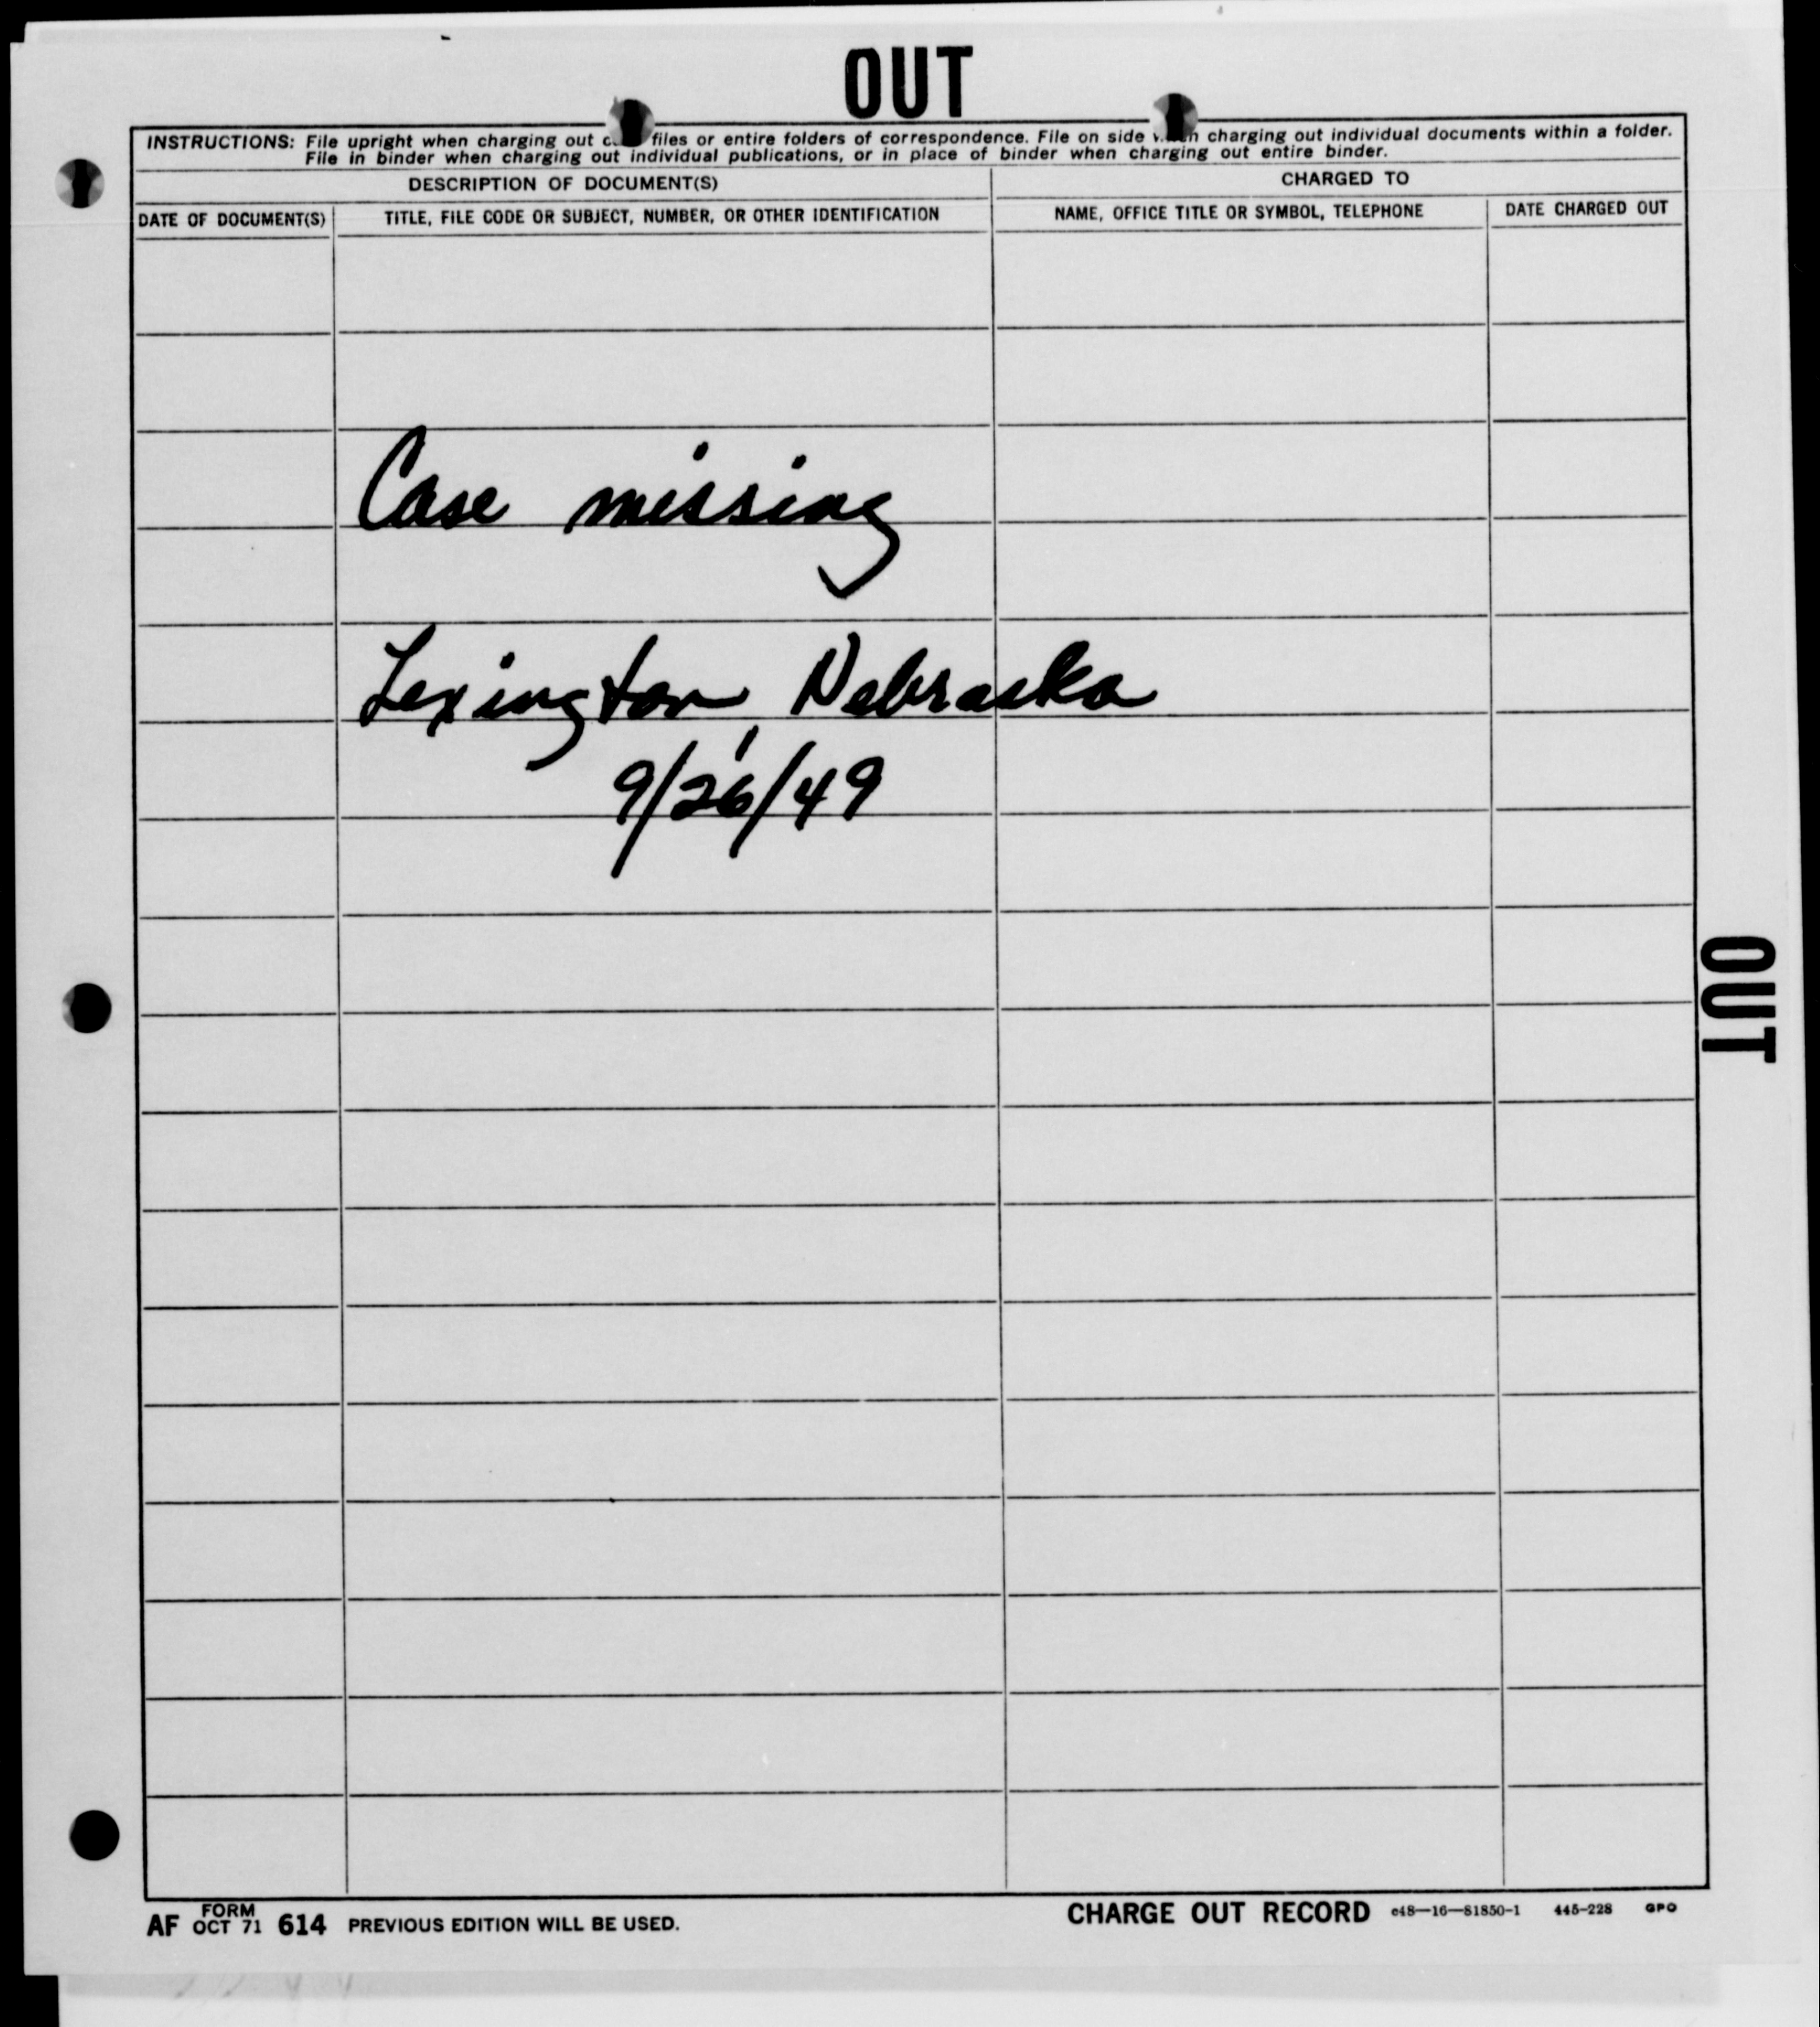 OUT
INSTRUCTIONS: File upright when charging out files or entire folders of correspondence. File on side charging out individual documents within a folder.
File in binder when charging out individual publications, or in place of binder when charging out entire binder.
DESCRIPTION OF DOCUMENT(S)
CHARGED TO
DATE OF DOCUMENT(S)
TITLE, FILE CODE OR SUBJECT, NUMBER, OR OTHER IDENTIFICATION
NAME, OFFICE TITLE OR SYMBOL, TELEPHONE
DATE CHARGED OUT
Case missing
Lexington, Nebraska
9/26/49
OUT
AF FORM OCT 71 614 PREVIOUS EDITION WILL BE USED.
CHARGE OUT RECORD c48—16—81850-1 445-228 GPO